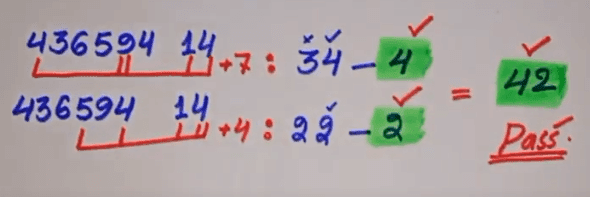 436594 14 +7 : 34 - 4
436594 14 +4 : 22 - 2
= 42
Pass.